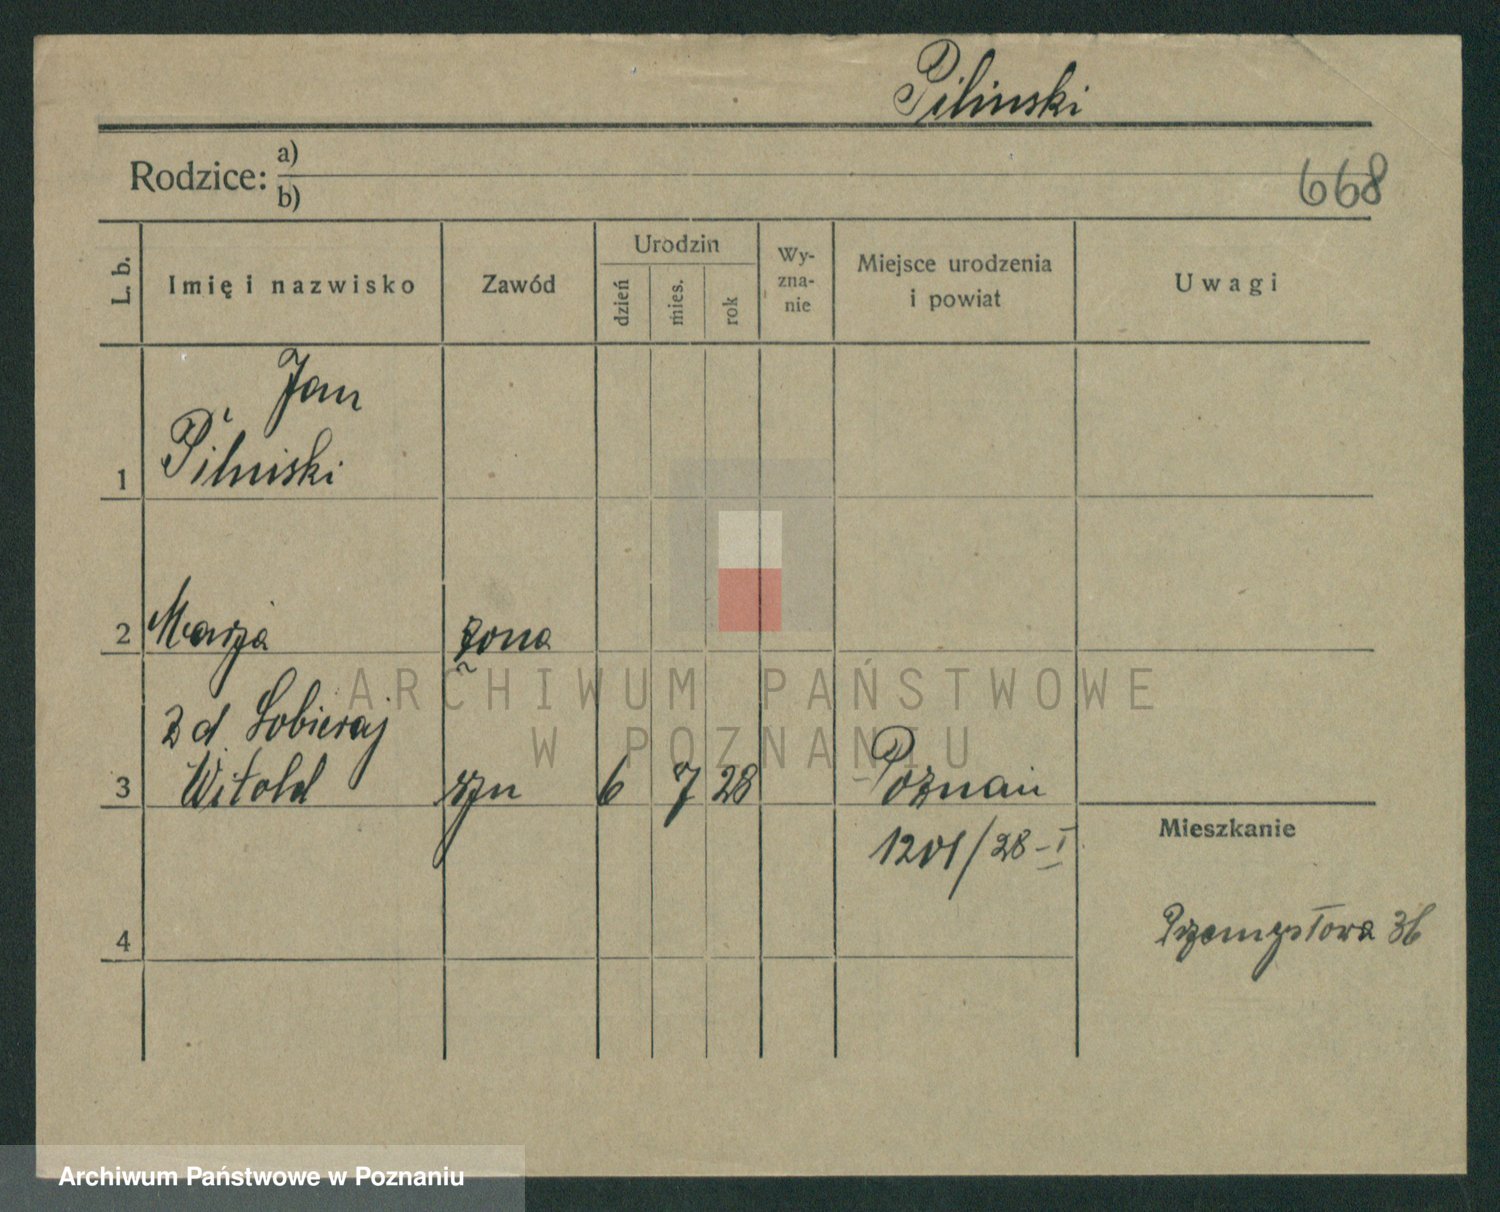 Pilinski
Rodzice: a)
b)
668
L. b.
Imię i nazwisko
Zawód
Urodzin
dzień
mies.
rok
Wy-
zna-
nie
Miejsce urodzenia
i powiat
Uwagi
Jan
Piliński
1
2 Marja żona
ARCHIWUM PAŃSTWOWE
W POZNANIU
z d Sobieraj
3 Witold syn 6 7 28 Poznań
1201/28-I
Mieszkanie
Przemysłowa 36
4
Archiwum Państwowe w Poznaniu